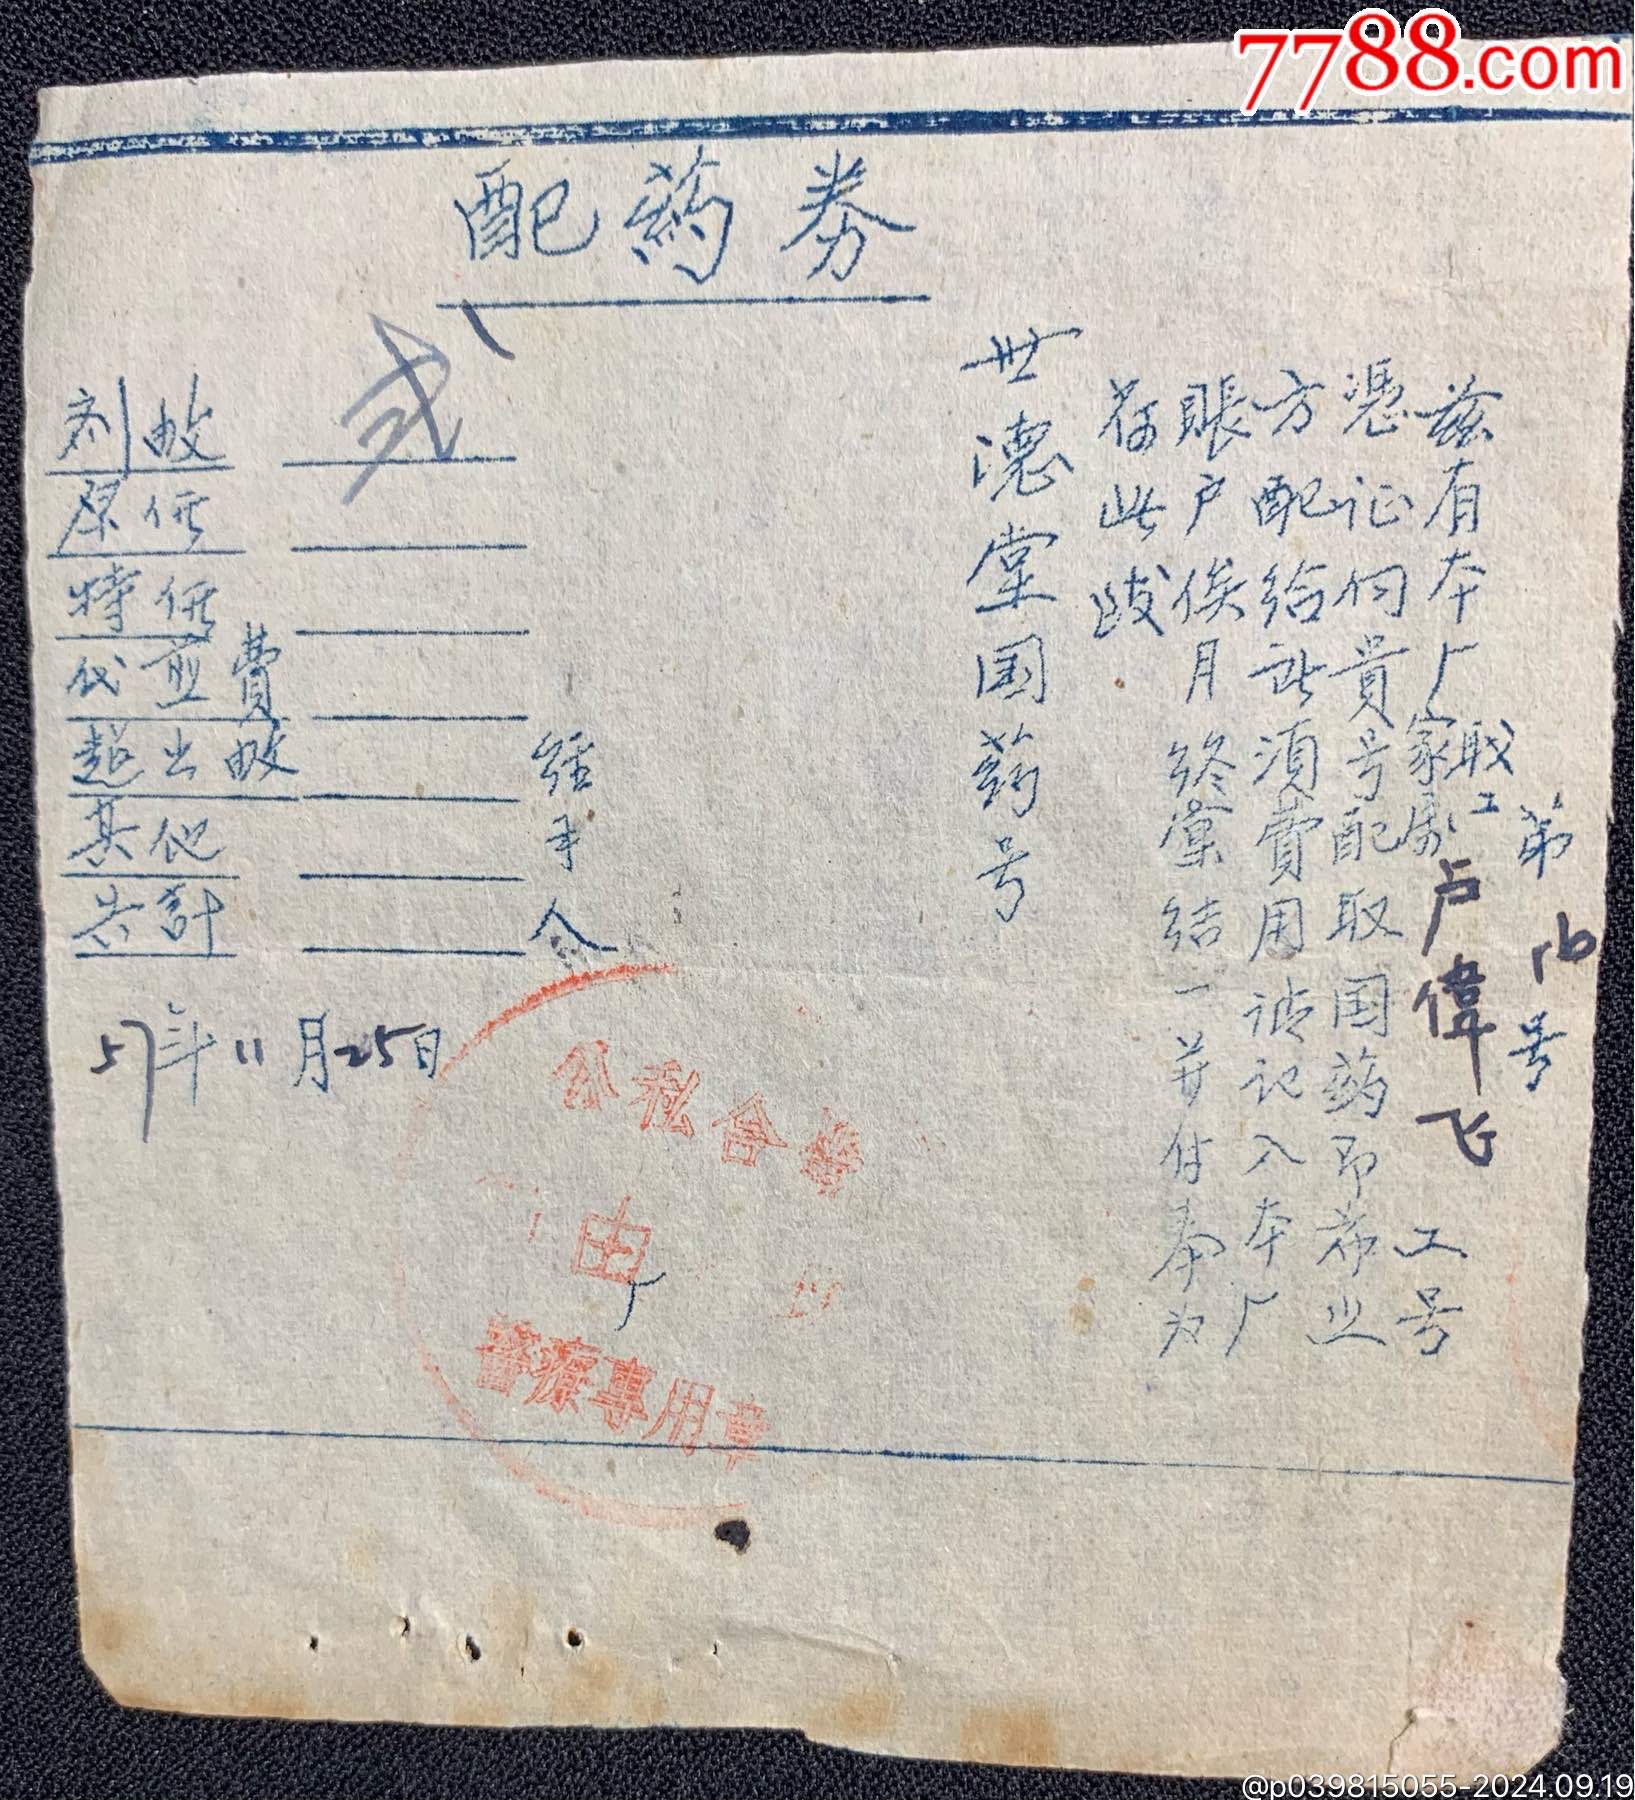 7788.com
配药券
第16号
兹有本厂职工家属卢偉飞工号
憑证向貴号配取国药即希业
方配给此須費用请记入本厂
賬户俟月终彙结一并付奉为
荷此致
世德堂国药号
剂数 弍
原价
特价
代煎費
超出数
其他
共計
经手人
57年11月25日
公私合营
由
醫療專用章
@p039815055-2024.09.19